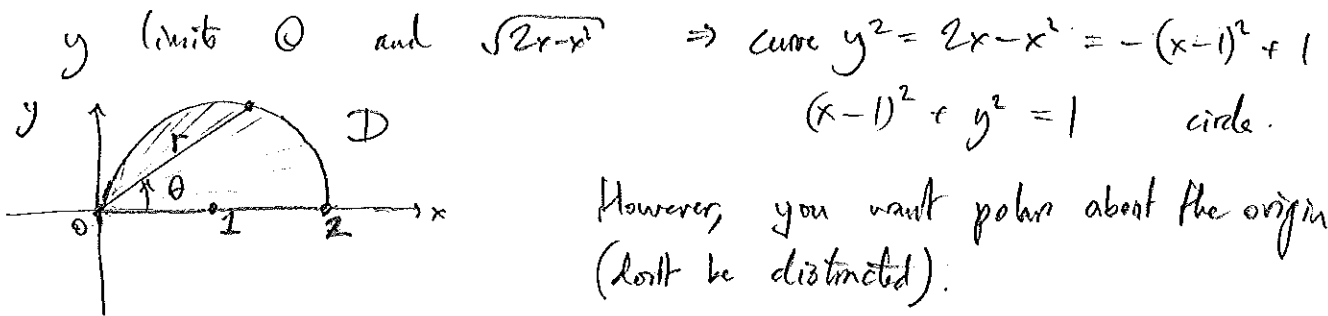 y limits 0 and √(2x-x²) ⇒ curve y² = 2x-x² = -(x-1)² + 1
(x-1)² + y² = 1 circle.
y
D
r
θ
0 1 2 x
However, you want polar about the origin
(don't be distracted).